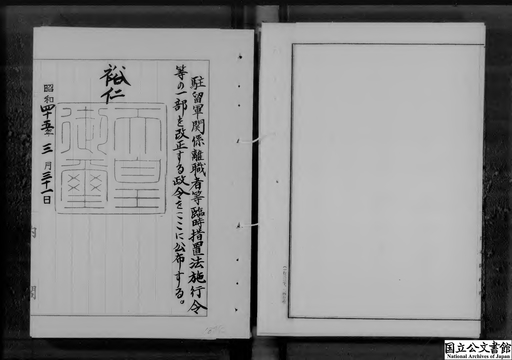 駐留軍関係離職者等臨時措置法施行令
等の一部を改正する政令をここに公布する。
裕仁
天皇
御璽
昭和四十五年三月三十一日
国立公文書館
National Archives of Japan